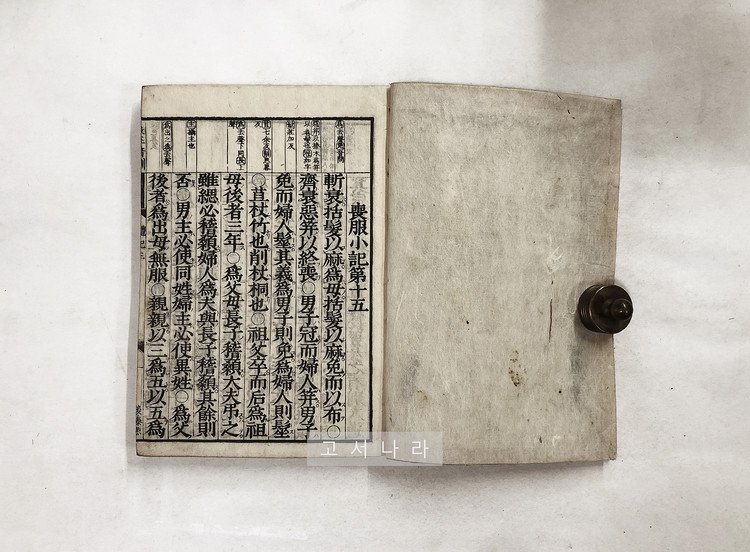 喪服小記第十五
斬衰括髮以麻爲母括髮以麻免而以布○
齊衰惡笄以終喪○男子冠而婦人笄男子
免而婦人髽其義爲男子則免爲婦人則髽
○苴杖竹也削杖桐也○祖父卒而后爲祖
母後者三年○爲父母長子稽顙大夫弔之
雖緦必稽顙婦人爲夫與長子稽顙其餘則
否○男主必使同姓婦主必使異姓○爲父
後者爲出母無服○親親以三爲五以五爲
主攝主也
고서나라